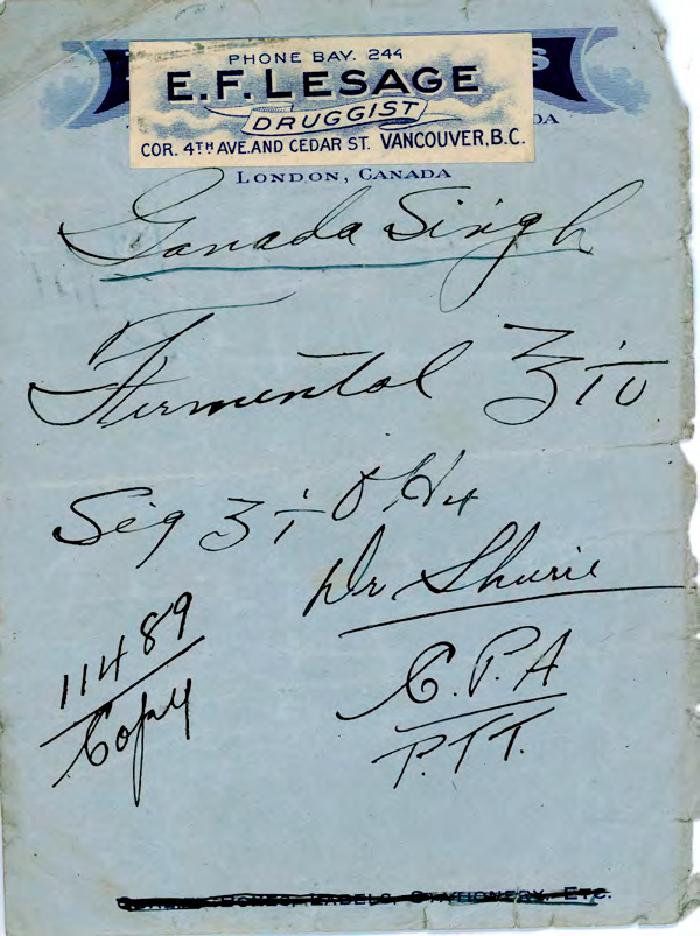 S
PHONE BAY. 244
E.F. LESAGE
DRUGGIST
DA
COR. 4TH AVE. AND CEDAR ST. VANCOUVER, B.C.
LONDON, CANADA
Ganada Singh
Fermental ℥ iv
Sig ʒ i O H4
Dr Shurie
11489
Copy
C.P.A
P.T.T.
BOXES, LABELS, STATIONERY, ETC.